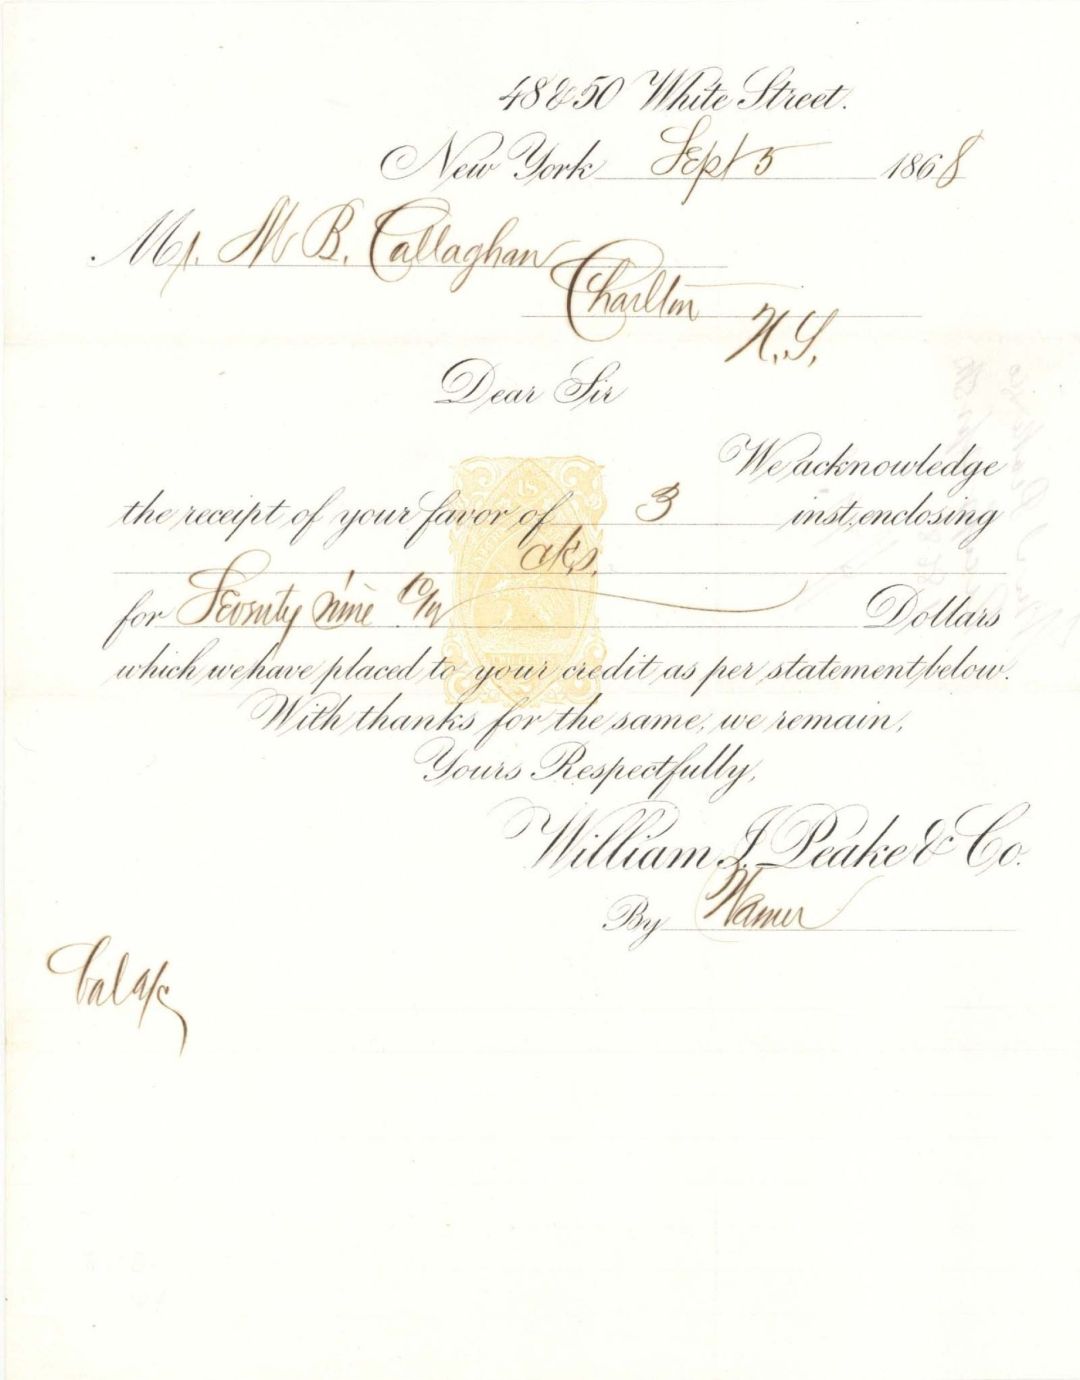 48 & 50 White Street.
New York Sept 5 1868
Mr. M B. Callaghan
Charlton
N.Y.
Dear Sir
We acknowledge
the receipt of your favor of 3 inst, enclosing
cks.
for Seventy nine Dollars
which we have placed to your credit as per statement below.
With thanks for the same, we remain,
Yours Respectfully,
William J. Peake & Co.
By
Bal a/c